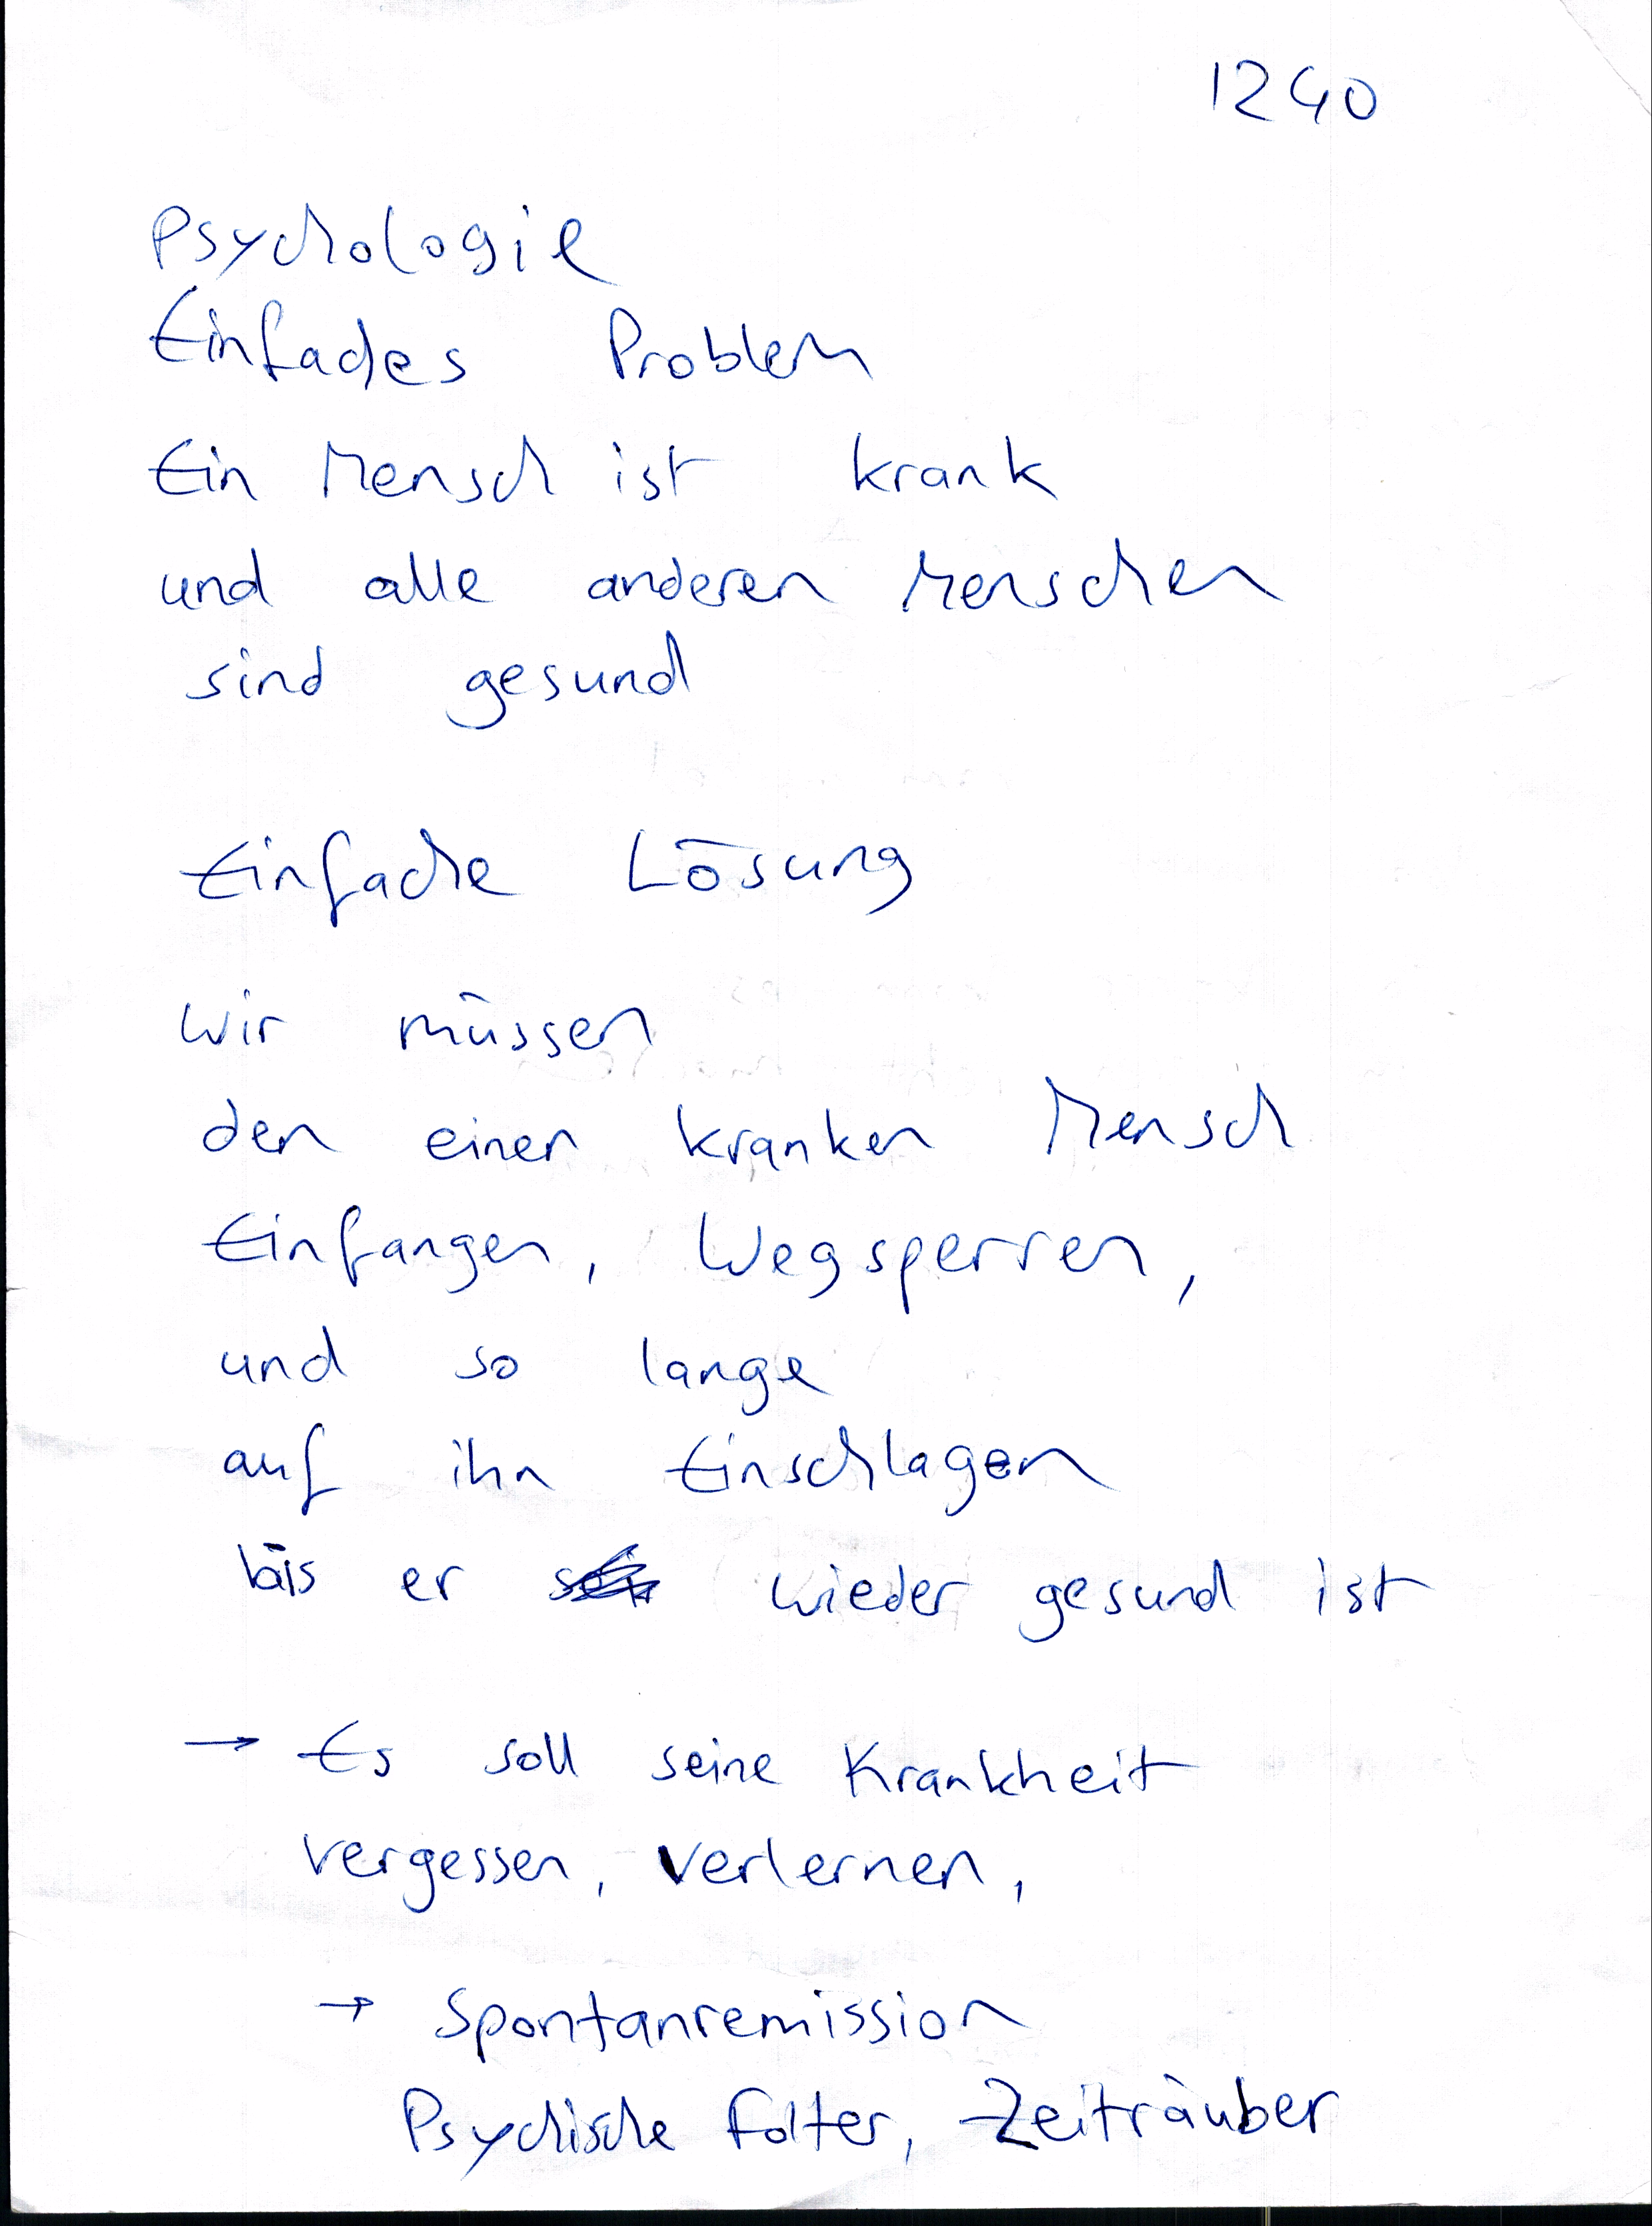 1240
Psychologie
Einfaches Problem
Ein Mensch ist krank
und alle anderen Menschen
sind gesund
Einfache Lösung
wir müssen
den einen kranken Mensch
Einfangen, Wegsperren,
und so lange
auf ihn Einschlagen
bis er wieder gesund ist
→ Es soll seine Krankheit
vergessen, verlernen,
→ Spontanremission
Psychische Folter, Zeiträuber